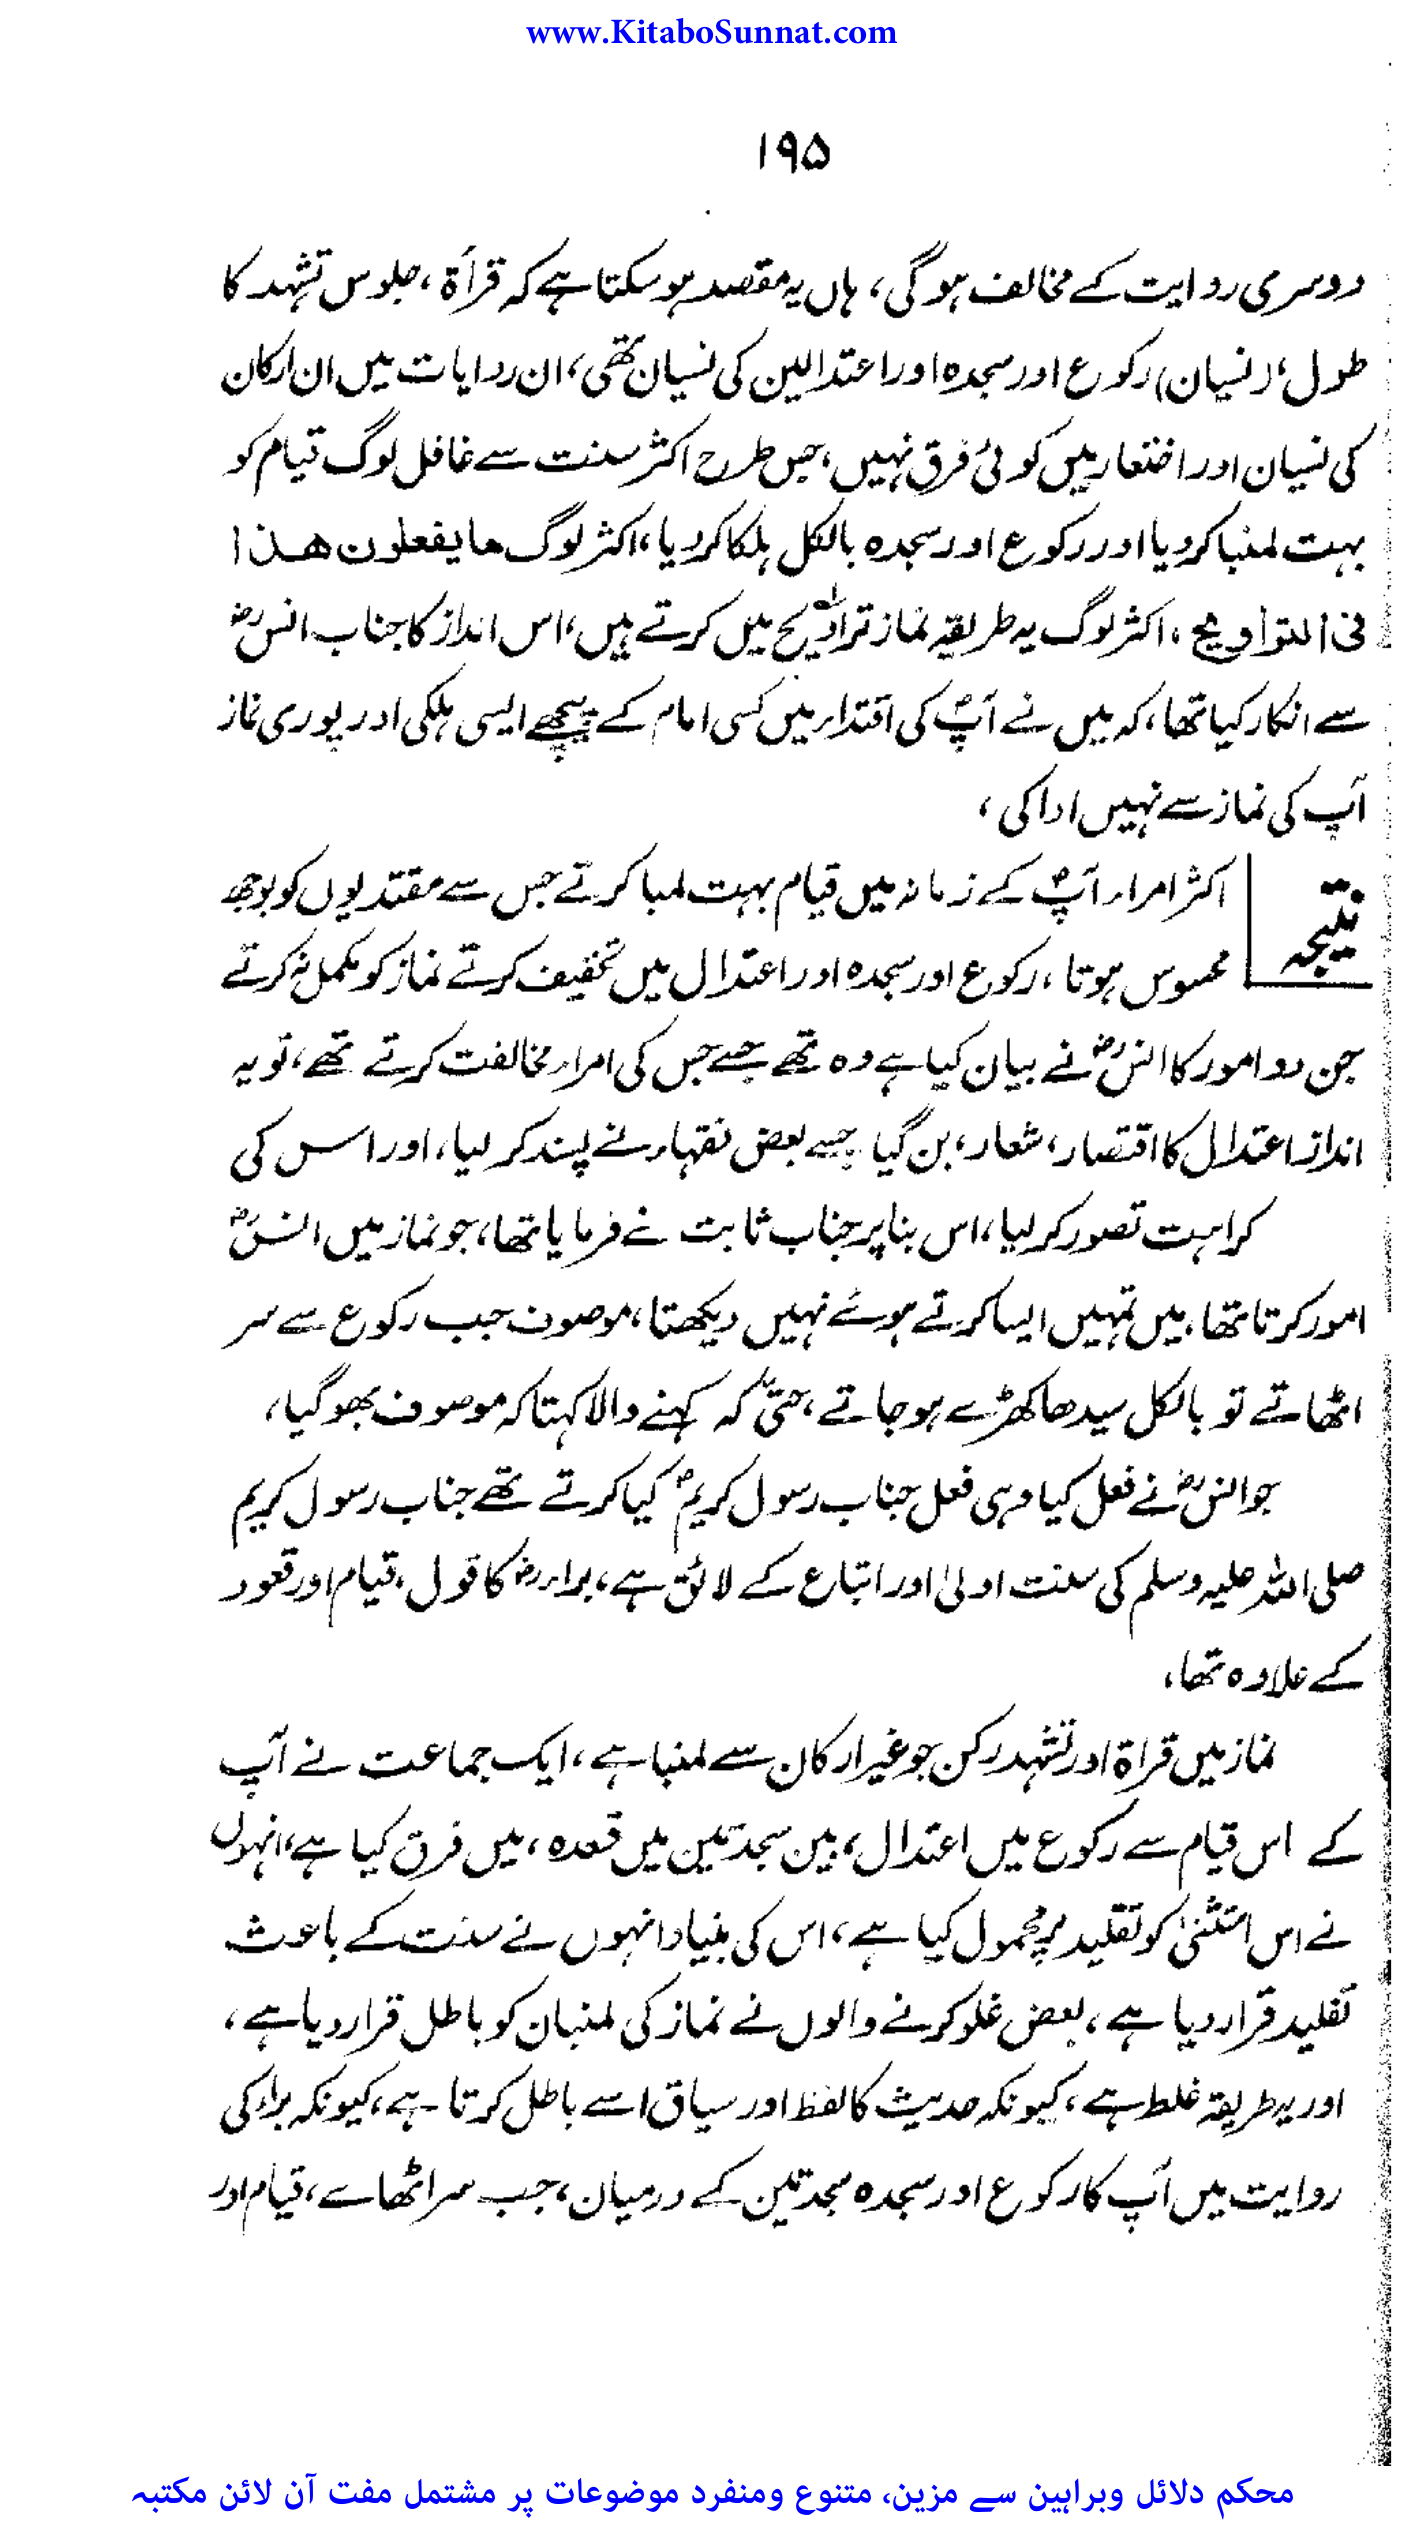 www.KitaboSunnat.com
۱۹۵
دوسری روایت کے مخالف ہوگی، ہاں یہ مقصد ہوسکتا ہے کہ قرأۃ، جلوس تشہد کا
طول، (نسیان) رکوع اور سجدہ اور اعتدالین کی نسیان تھی، ان روایات میں ان ارکان
کی نسیان اور اختصار میں کوئی فرق نہیں، جس طرح اکثر سنت سے غافل لوگ قیام کو
بہت لمنبا کردیا اور رکوع اور سجدہ بالکل ہلکا کردیا، اکثر لوگ ما یفعلون ھذا
فی التراویح، اکثر لوگ یہ طریقہ نماز تراویح میں کرتے ہیں، اس انداز کا جناب انسؓ
سے انکار کیا تھا، کہ میں نے آپؐ کی اقتداء میں کسی امام کے پیچھے ایسی ہلکی اور پوری نماز
آپ کی نماز سے نہیں ادا کی،
نتیجہ
اکثر امراء آپؐ کے زمانہ میں قیام بہت لمبا کرتے جس سے مقتدیوں کو بوجھ
محسوس ہوتا، رکوع اور سجدہ اور اعتدال میں تخفیف کرتے نماز کو مکمل نہ کرتے
جن دو امور کا انسؓ نے بیان کیا ہے وہ تھے جسے جس کی امراء مخالفت کرتے تھے، تو یہ
انداز اعتدال کا اقتصار، شعار، بن گیا جسے بعض فقہاء نے پسند کر لیا، اور اس کی
کراہت تصور کرلیا، اس بنا پر جناب ثابت نے فرمایا تھا، جو نماز میں انسؓ
امور کرتا تھا، میں تمہیں ایسا کرتے ہوئے نہیں دیکھتا، موصوف جب رکوع سے سر
اٹھاتے تو بالکل سیدھا کھڑے ہو جاتے، حتیٰ کہ کہنے والا کہتا کہ موصوف بھو گیا،
جو انسؓ نے فعل کیا وہی فعل جناب رسول کریمؐ کیا کرتے تھے جناب رسول کریم
صلی اللہ علیہ وسلم کی سنت اولیٰ اور اتباع کے لائق ہے، براءؓ کا قول، قیام اور قعود
کے علاوہ تھا،
نماز میں قراۃ اور تشہد رکن جو غیر ارکان سے لمنبا ہے، ایک جماعت نے آپ
کے اس قیام سے رکوع میں اعتدال، بین سجدتین میں قعدہ، میں فرق کیا ہے، انہوں
نے اس استثنیٰ کو تقلید پر محمول کیا ہے، اس کی بنیاد انہوں نے سنت کے باعث
تقلید قرار دیا ہے، بعض غلو کرنے والوں نے نماز کی لمنبان کو باطل قرار دیا ہے،
اور یہ طریقہ غلط ہے، کیونکہ حدیث کا لفظ اور سیاق اسے باطل کرتا ہے، کیونکہ براء کی
روایت میں آپ کا رکوع اور سجدہ سجدتین کے درمیان، جب سر اٹھاسے، قیام اور
محکم دلائل وبراہین سے مزین، متنوع ومنفرد موضوعات پر مشتمل مفت آن لائن مکتبہ